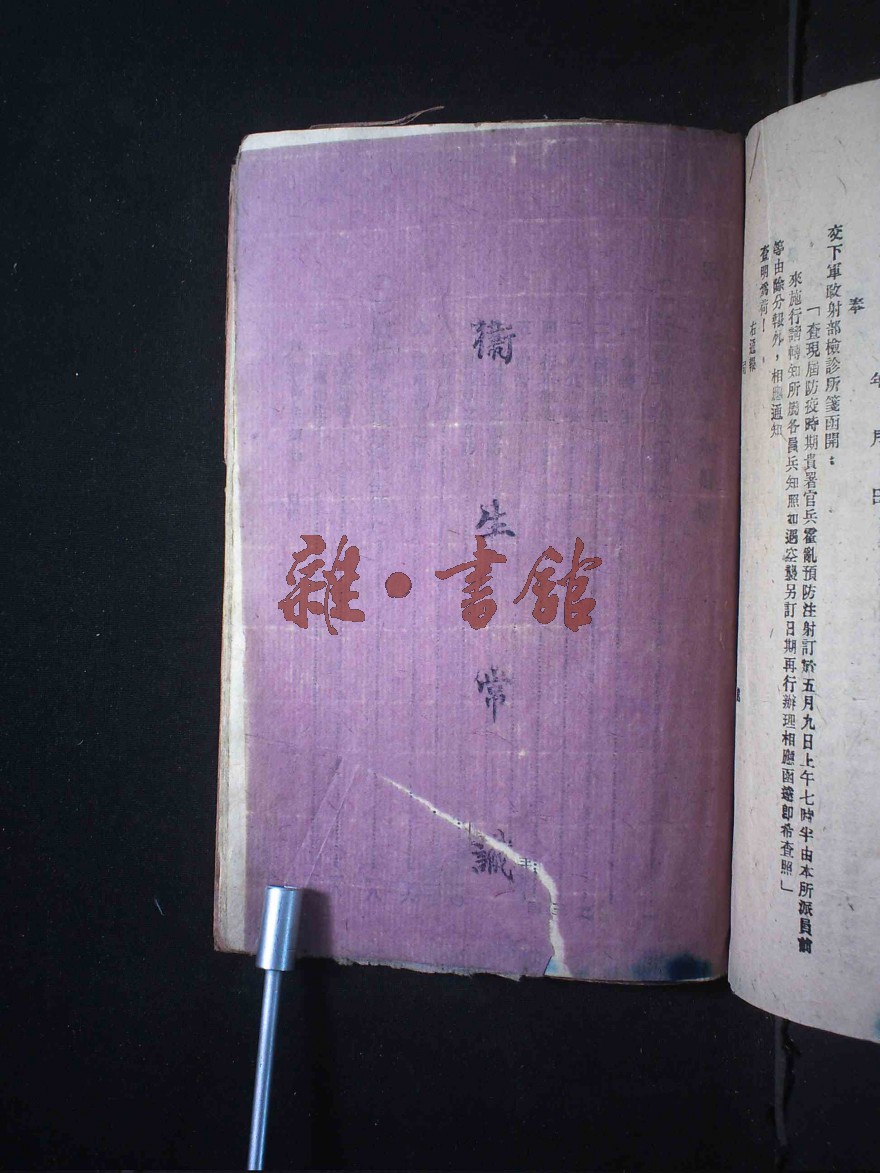 衞生常識
雜·書館
年月日
奉
交下軍政射部檢診所箋函開：
「查現屆防疫時期貴署官兵霍亂預防注射訂於五月九日上午七時半由本所派員前
來施行請轉知所屬各員兵知照如遇空襲另訂日期再行辦理相應函達即希查照」
等由除分報外，相應通知
查明為荷！
右通報